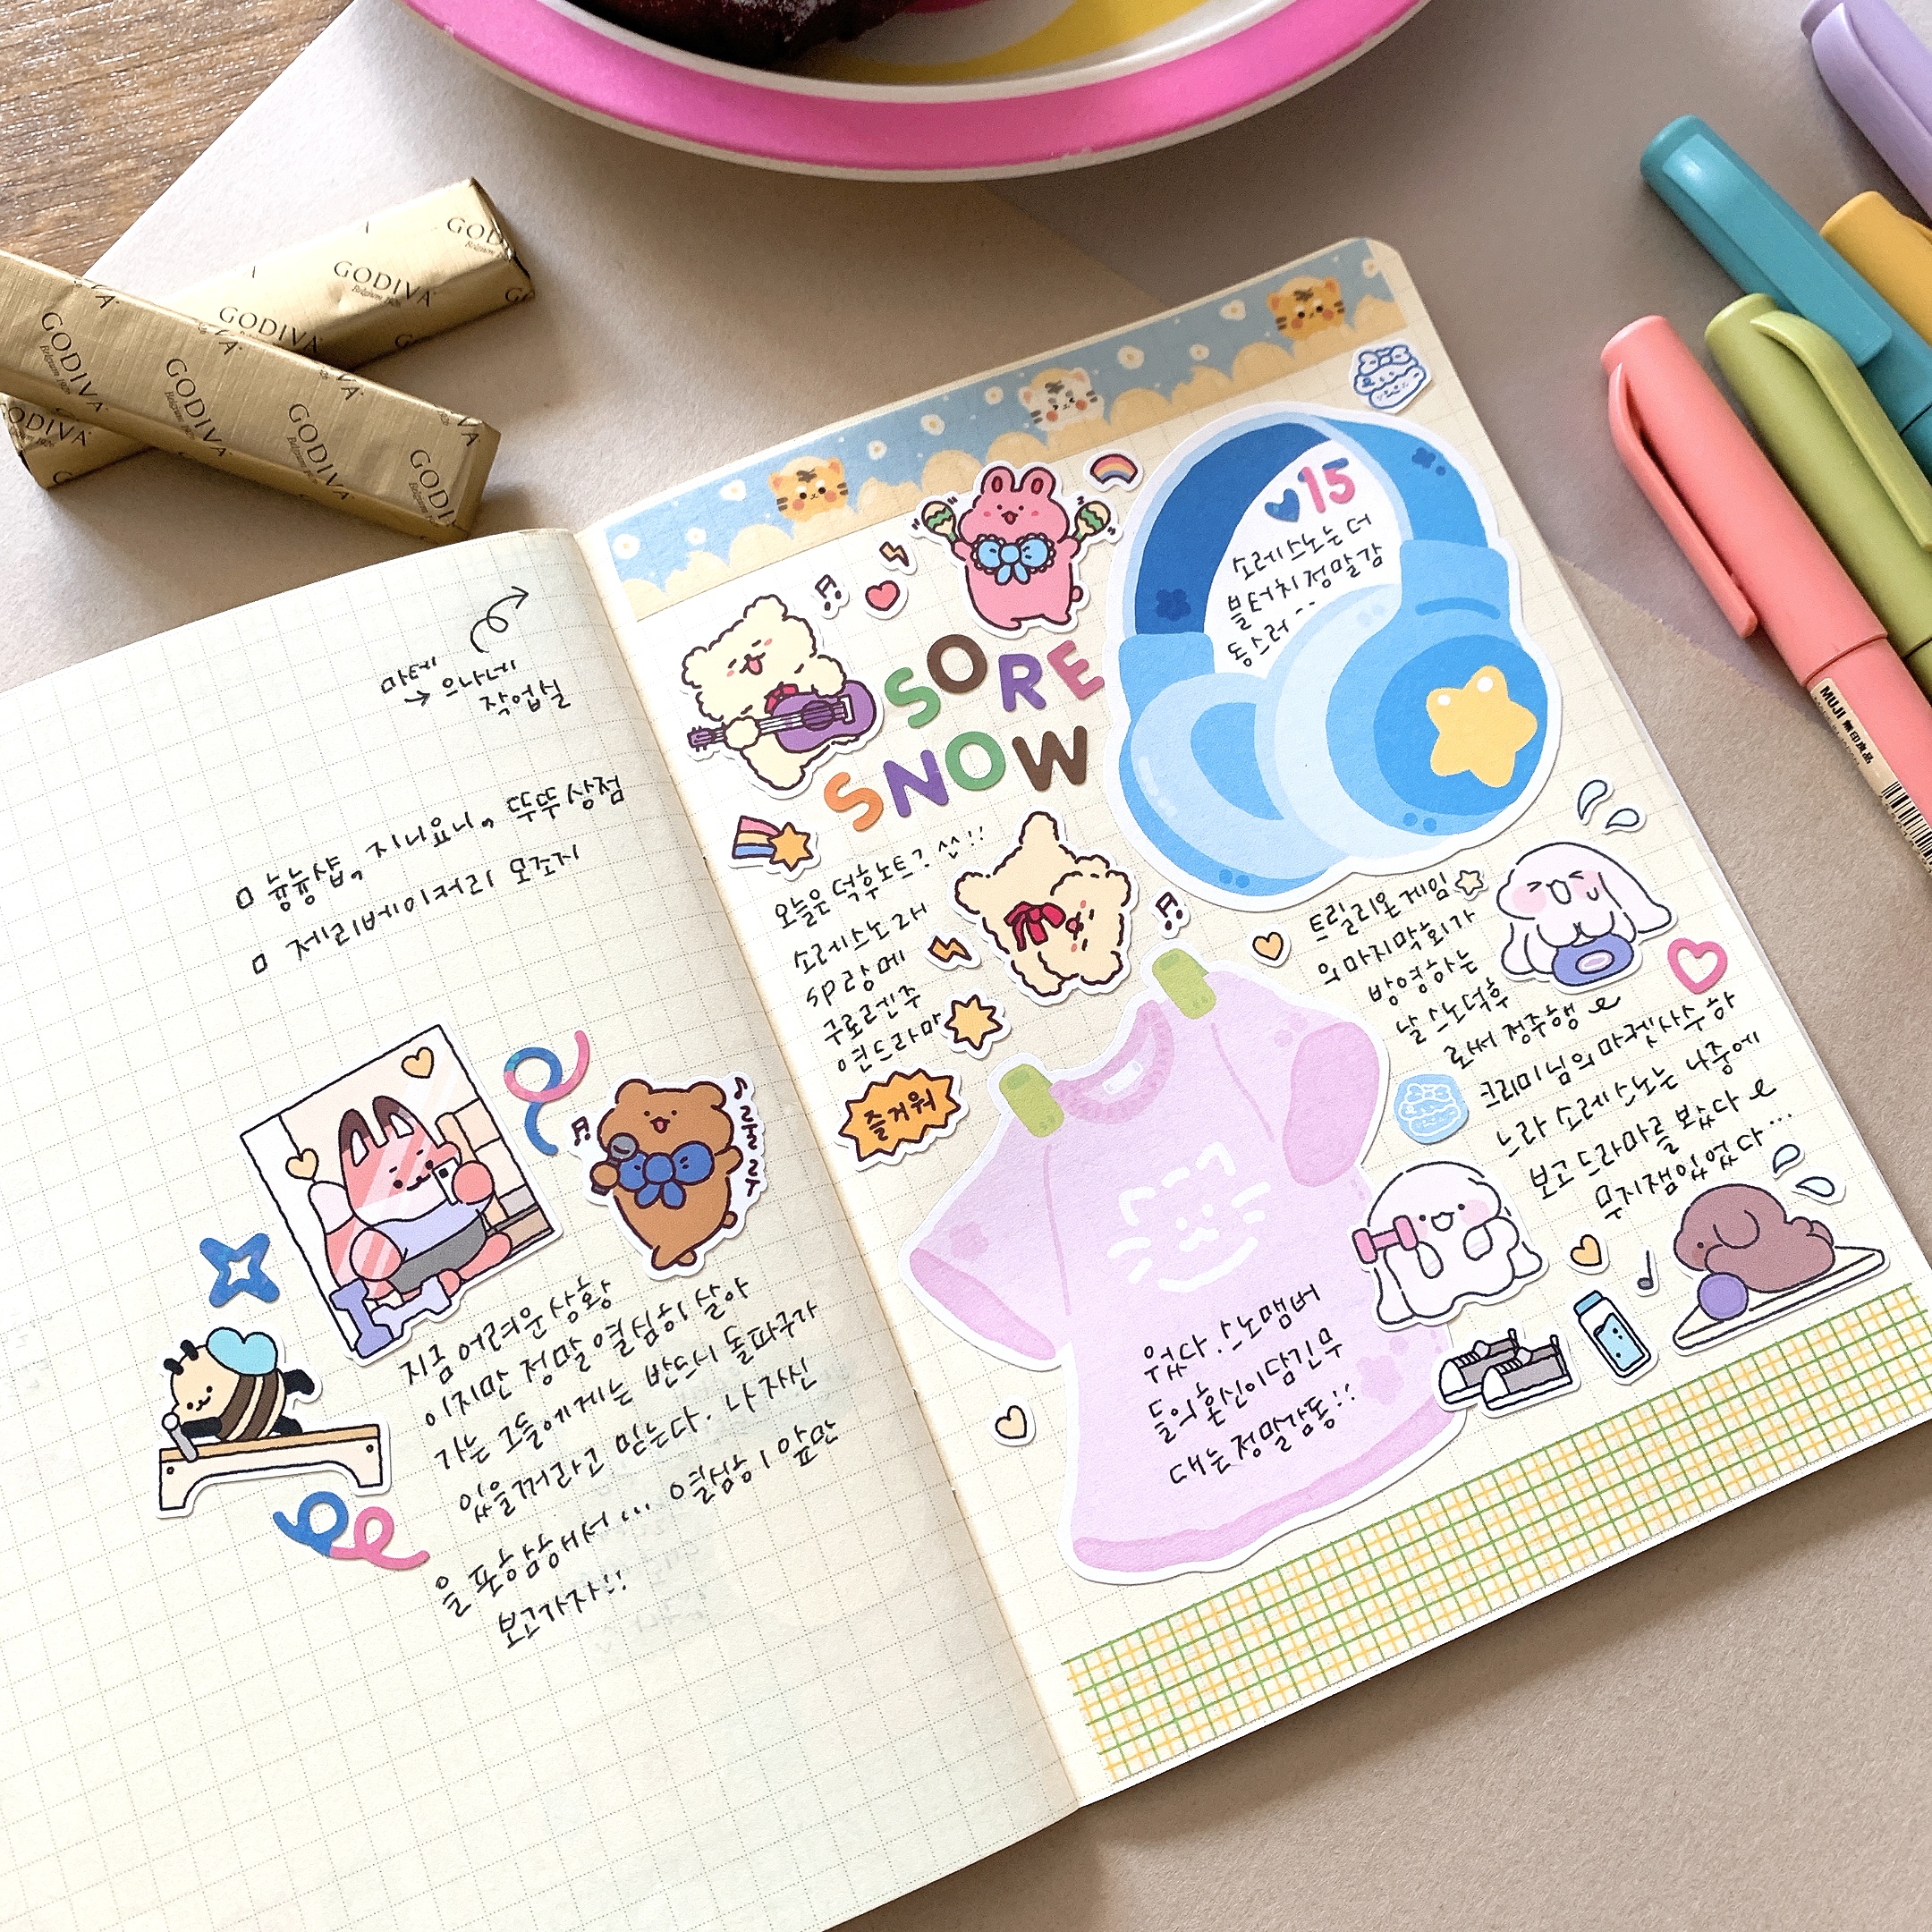 GODIVA
Belgium 1926
GODIVA
Belgium 1926
GODIVA
GODIVA
GODIVA
GODIVA
마테
→ 으나네
작업실
□ 늉늉샵, 지니요니, 뚜뚜상점
□ 제리베이커리 모조지
룰루
지금 어려운 상황
이지만 정말 열심히 살아
가는 그들에게는 반드시 돌파구가
있을꺼라고 믿는다. 나 자신
을 포함해서 ... 열심히 앞만
보고가자!!
SORE
SNOW
15
소레스노는 더
블터치 정말감
동스러 ..
오늘은 덕후노트? ^^!!
소레스노 래
SP랑 메
구로렌주
연드라마
즐거워
트릴리온게임
의 마지막회가
방영하는
날 스노덕후
로써 정주행
크리미님의 마켓사수하
느라 소레스노는 나중에
보고 드라마를 봤다
무지잼있었다 ...
웠다. 스노맴버
들의 혼신이 담긴 무
대는 정말감동!!
MUJI 無印良品